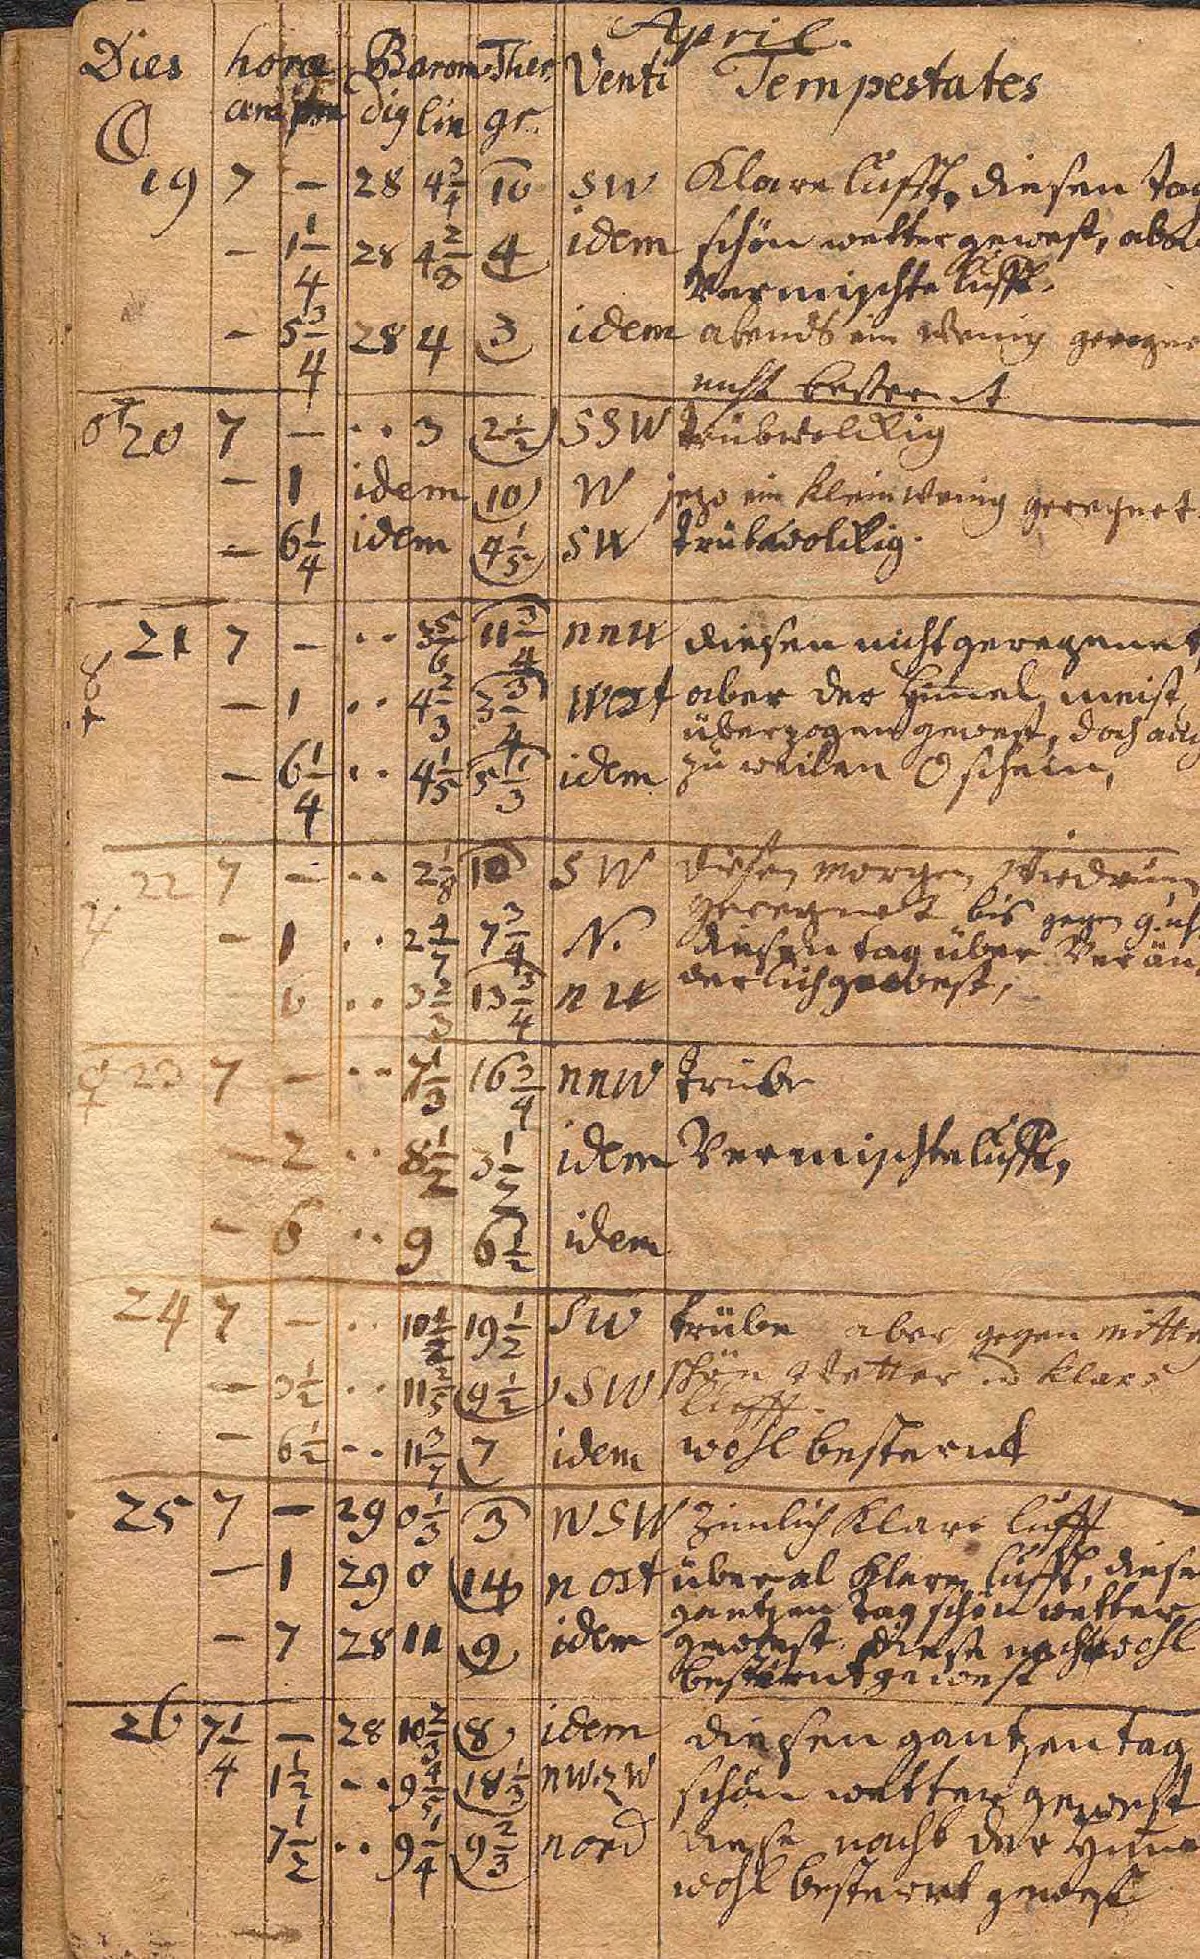 April.
Dies hora Barom Ther. Venti Tempestates
am pm dig lin gr.
☾
19 7 – 28 4 3/4 10 SW Klare lufft, diesen tag
– 1 1/4 28 4 2/3 4 idem schön wetter gewest, aber
Vermischte lufft.
– 5 3/4 28 4 3 idem abends ein wenig geregnet
nicht besternt
♂ 20 7 – .. 3 2 1/2 SSW trübwolckig
– 1 idem 10 W jezo ein klein wenig geregnet
– 6 1/4 idem 4 1/5 SW trübwolckig.
☿ 21 7 – .. 3 5/6 11 3/4 nnw diesen nicht geregenet
– 1 .. 4 2/3 3 3/4 west aber der Himel meist
überzogen gewest, doch auch
– 6 1/4 .. 4 1/5 5 1/3 idem zu weilen ☉ schein,
♃ 22 7 – .. 2 1/8 10 SW diesen morgen
geregnet bis gegen 9 uhr
– 1 .. 2 4/7 7 3/4 N. diesen tag über Verän
6 .. 3 2/3 13 3/4 nw derlich gewest,
♀ 23 7 – .. 7 1/3 16 3/4 nnw trübe
– 2 .. 8 1/2 3 1/2 idem Vermischte lufft,
– 6 .. 9 6 1/2 idem
24 7 – .. 10 1/2 19 1/2 SW trübe aber gegen mitta
– 3 1/2 .. 11 2/5 9 1/2 SW schön Wetter klare
lufft.
– 6 1/2 .. 11 3/7 7 idem wohl besternt
25 7 – 29 0 1/3 3 WSW zimlich klare lufft
– 1 29 0 14 n ost überal klare lufft, diesen
gantzen tag schön wetter
– 7 28 11 9 idem gewest. diese nacht wohl
besternt gewest
26 7 1/4 – 28 10 2/3 8 idem diesen gantzen tag
1 1/2 .. 9 4/5 18 1/3 nwzw schön wetter gewest
7 1/2 .. 9 1/4 9 2/3 nord diese nacht der Himel
wohl besternt gewest